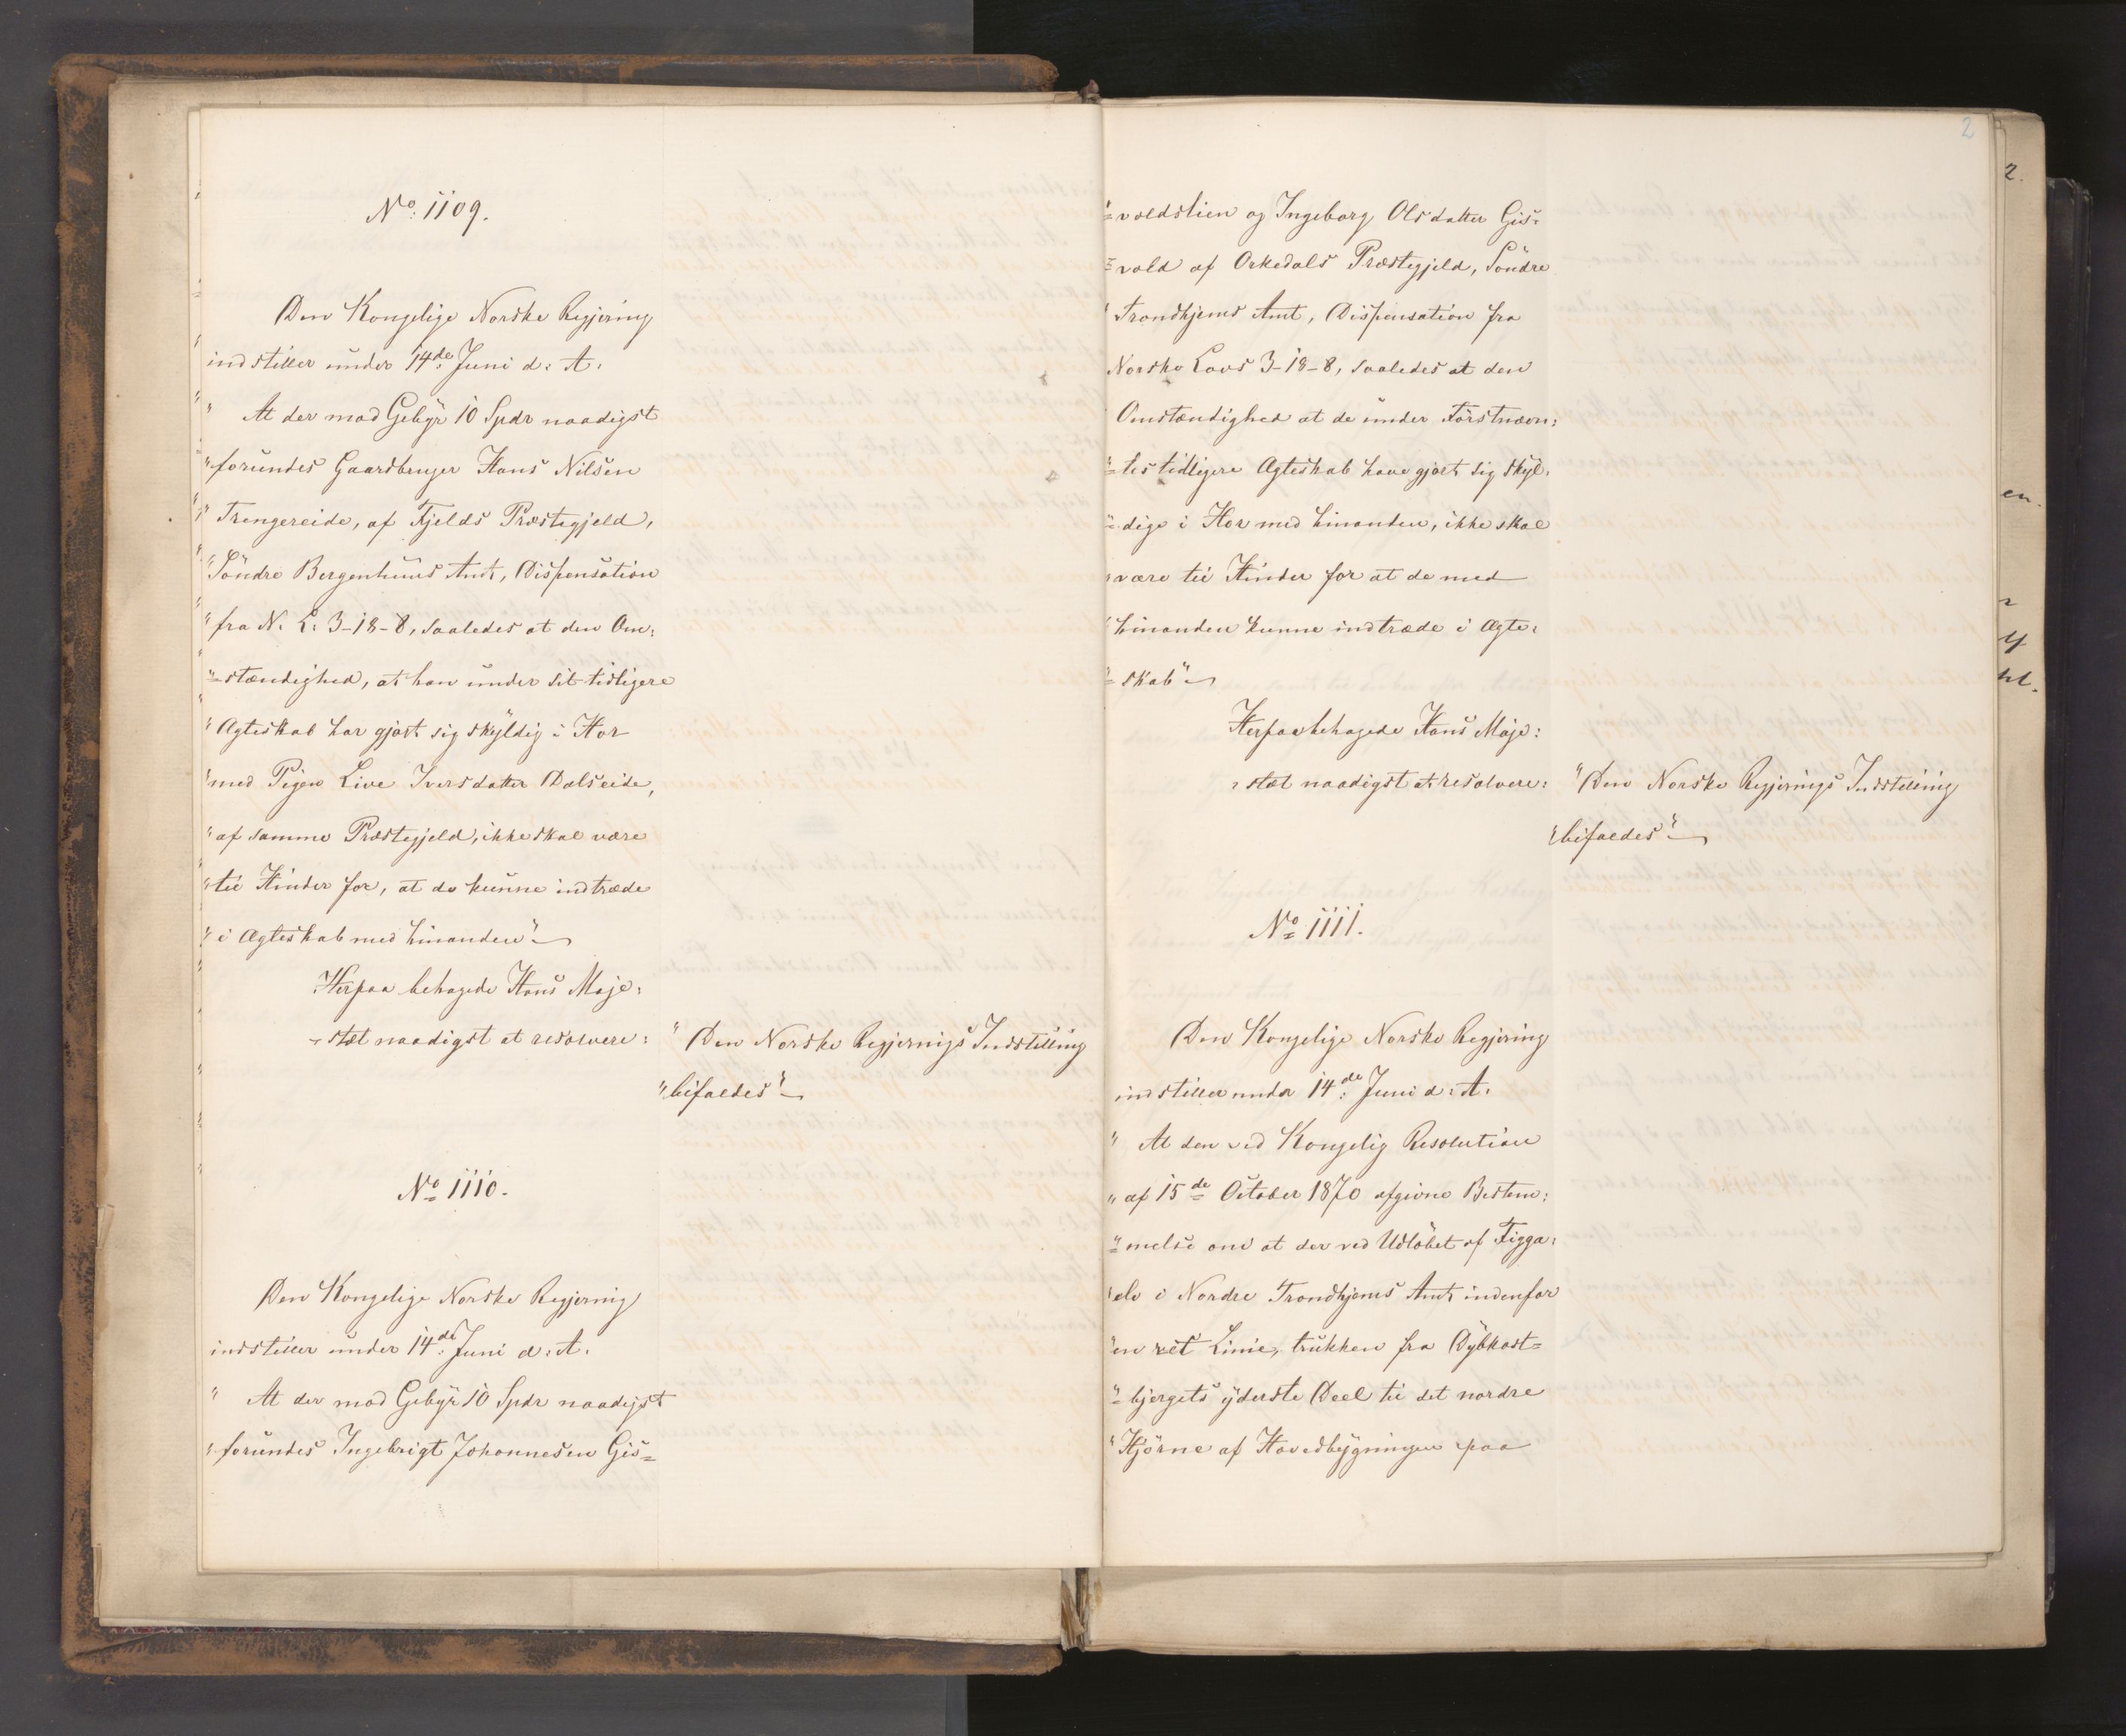 No. 1109.
Den Kongelige Norske Regjering
indstiller under 14de Juni d: A.
" At der mod Gebyr 10 Spdr naadigst
"forundes Gaardbruger Hans Nilsen
" Trengereide, af Fjelds Præstegjeld,
"Söndre Bergenhuus Amt, Dispensation
"fra N. L: 3-18-8, saaledes at den Om:
"=stændighed, at han under sit tidligere
"Ægteskab har gjort sig skyldig i Hor
"med Pigen Live Iversdatter Dalseide,
"af samme Præstegjeld, ikke skal være
"til Hinder for, at de kunne indtræde
" i Ægteskab med hinanden"
Herpaa behagede Hans Maje:
=stæt naadigst at resolvere:
" Den Norske Regjerings Indstilling
"bifaldes"
No 1110.
Den Kongelige Norske Regjering
indstiller under 14de Juni d: A.
" At der mod Gebyr 10 Spdr naadigst
"forundes Ingebrigt Johannesen Gis=
2
"=voldslien og Ingeborg Olsdatter Gis=
"=vold af Orkedals Præstegjeld, Söndre
" Trondhjems Amt, Dispensation fra
Norske Lovs 3-18-8, saaledes at den
Omstændighed at de under Förstnævn:
"=tes tidligere Ægteskab have gjort sig skyl:
"=dige i Hor med hinanden, ikke skal
"være til Hinder for at de med
"hinanden kunne indtræde i Ægte:
"=skab"
Herpaa behagede Hans Maje:
=stæt naadigst at resolvere:
"Den Norske Regjerings Indstilling
"bifaldes"
No 1111.
Den Kongelige Norske Regjering
indstiller under 14de Juni d: A.
" At den ved Kongelig Resolution
"af 15de October 1870 afgivne Bestem:
"=melse om at der ved Udlöbet af Figga:
"elv i Nordre Trondhjems Amt indenfor
"en ret Linie, trukken fra Dybkast=
"=bjergets yderste Deel til det nordre
"Hjörne af Hovedbygningen paa
2.
en.